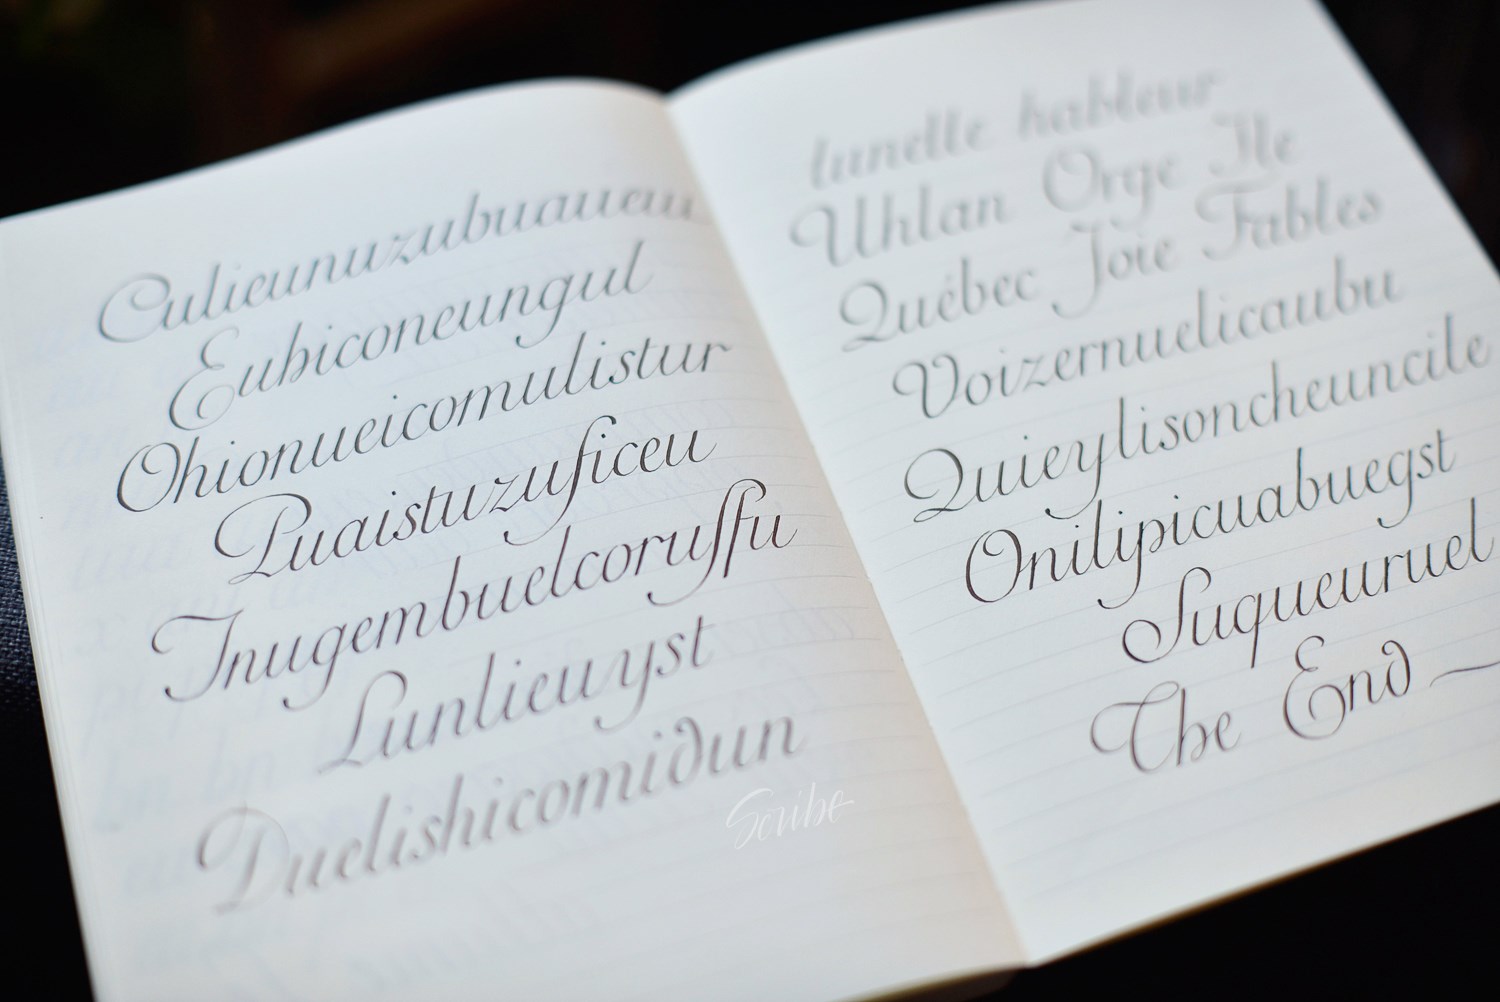 Culieunuzubuaueu
Eubiconeungul
Ohionueicomulistur
Puaistuzuficeu
Inugembuelcoruffu
Lunlieuyst
Duelishicomidun
Scribe
lunette hableur
Uhlan Orge Ile
Québec Joie Fables
Voizernuelicaubu
Quieylisoncheuncile
Onilipicuabuegst
Suqueuruel
The End